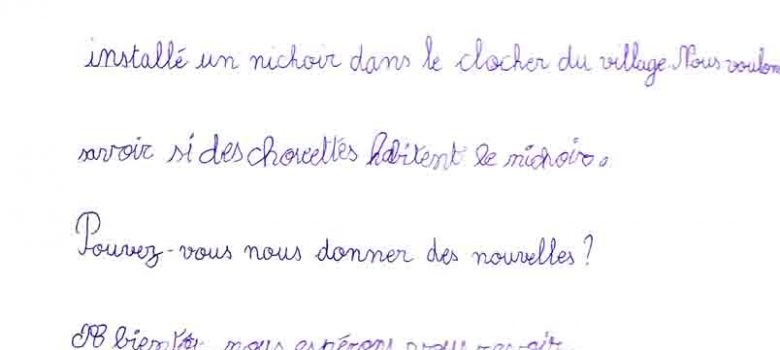 installé un nichoir dans le clocher du village. Nous voulon
savoir si des chouettes habitent le nichoir.
Pouvez-vous nous donner des nouvelles ?
A bientôt nous espérons vous revoir